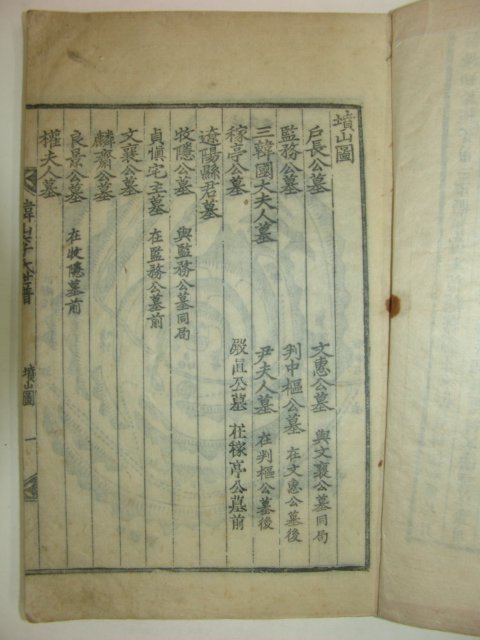 墳山圖
戶長公墓 文惠公墓 與文襄公墓同局
監務公墓 判中樞公墓 在文惠公墓後
三韓國大夫人墓 尹夫人墓 在判樞公墓後
稼亭公墓 嚴直公墓 在稼亭公墓前
遼陽縣君墓
牧隱公墓 與監務公墓同局
貞愼宅主墓 在監務公墓前
文襄公墓
麟齋公墓
良景公墓 在牧隱墓前
權夫人墓
韓山李氏世譜 墳山圖 一